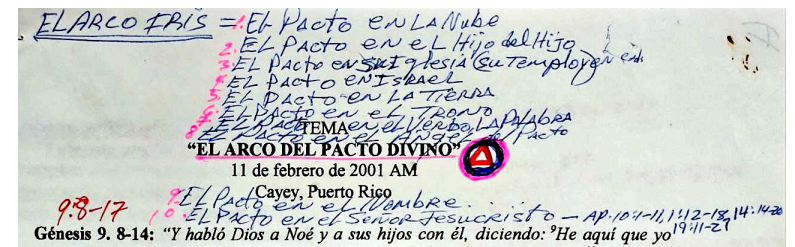 EL ARCO IRIS = 1. EL PACTO EN LA Nube
2. EL PACTO EN EL Hijo del Hijo
3. EL PACTO EN SU Iglesia (su Templo) en
EL PACTO EN ISRAEL
EL PACTO EN LA TIERRA
EL PACTO EN EL TRONO
EL PACTO en el Verbo, LA PALABRA
EL PACTO EN EL Angel del Pacto
TEMA
“EL ARCO DEL PACTO DIVINO”
11 de febrero de 2001 AM
Cayey, Puerto Rico
9. EL PACTO EN EL Nombre...
9:8-17
10. EL PACTO en el SEÑOR JESUCRISTO – AP. 10:1-11, 1:12-18, 14:14-20
19:11-21
Génesis 9. 8-14: “Y habló Dios a Noé y a sus hijos con él, diciendo: ⁹He aquí que yo